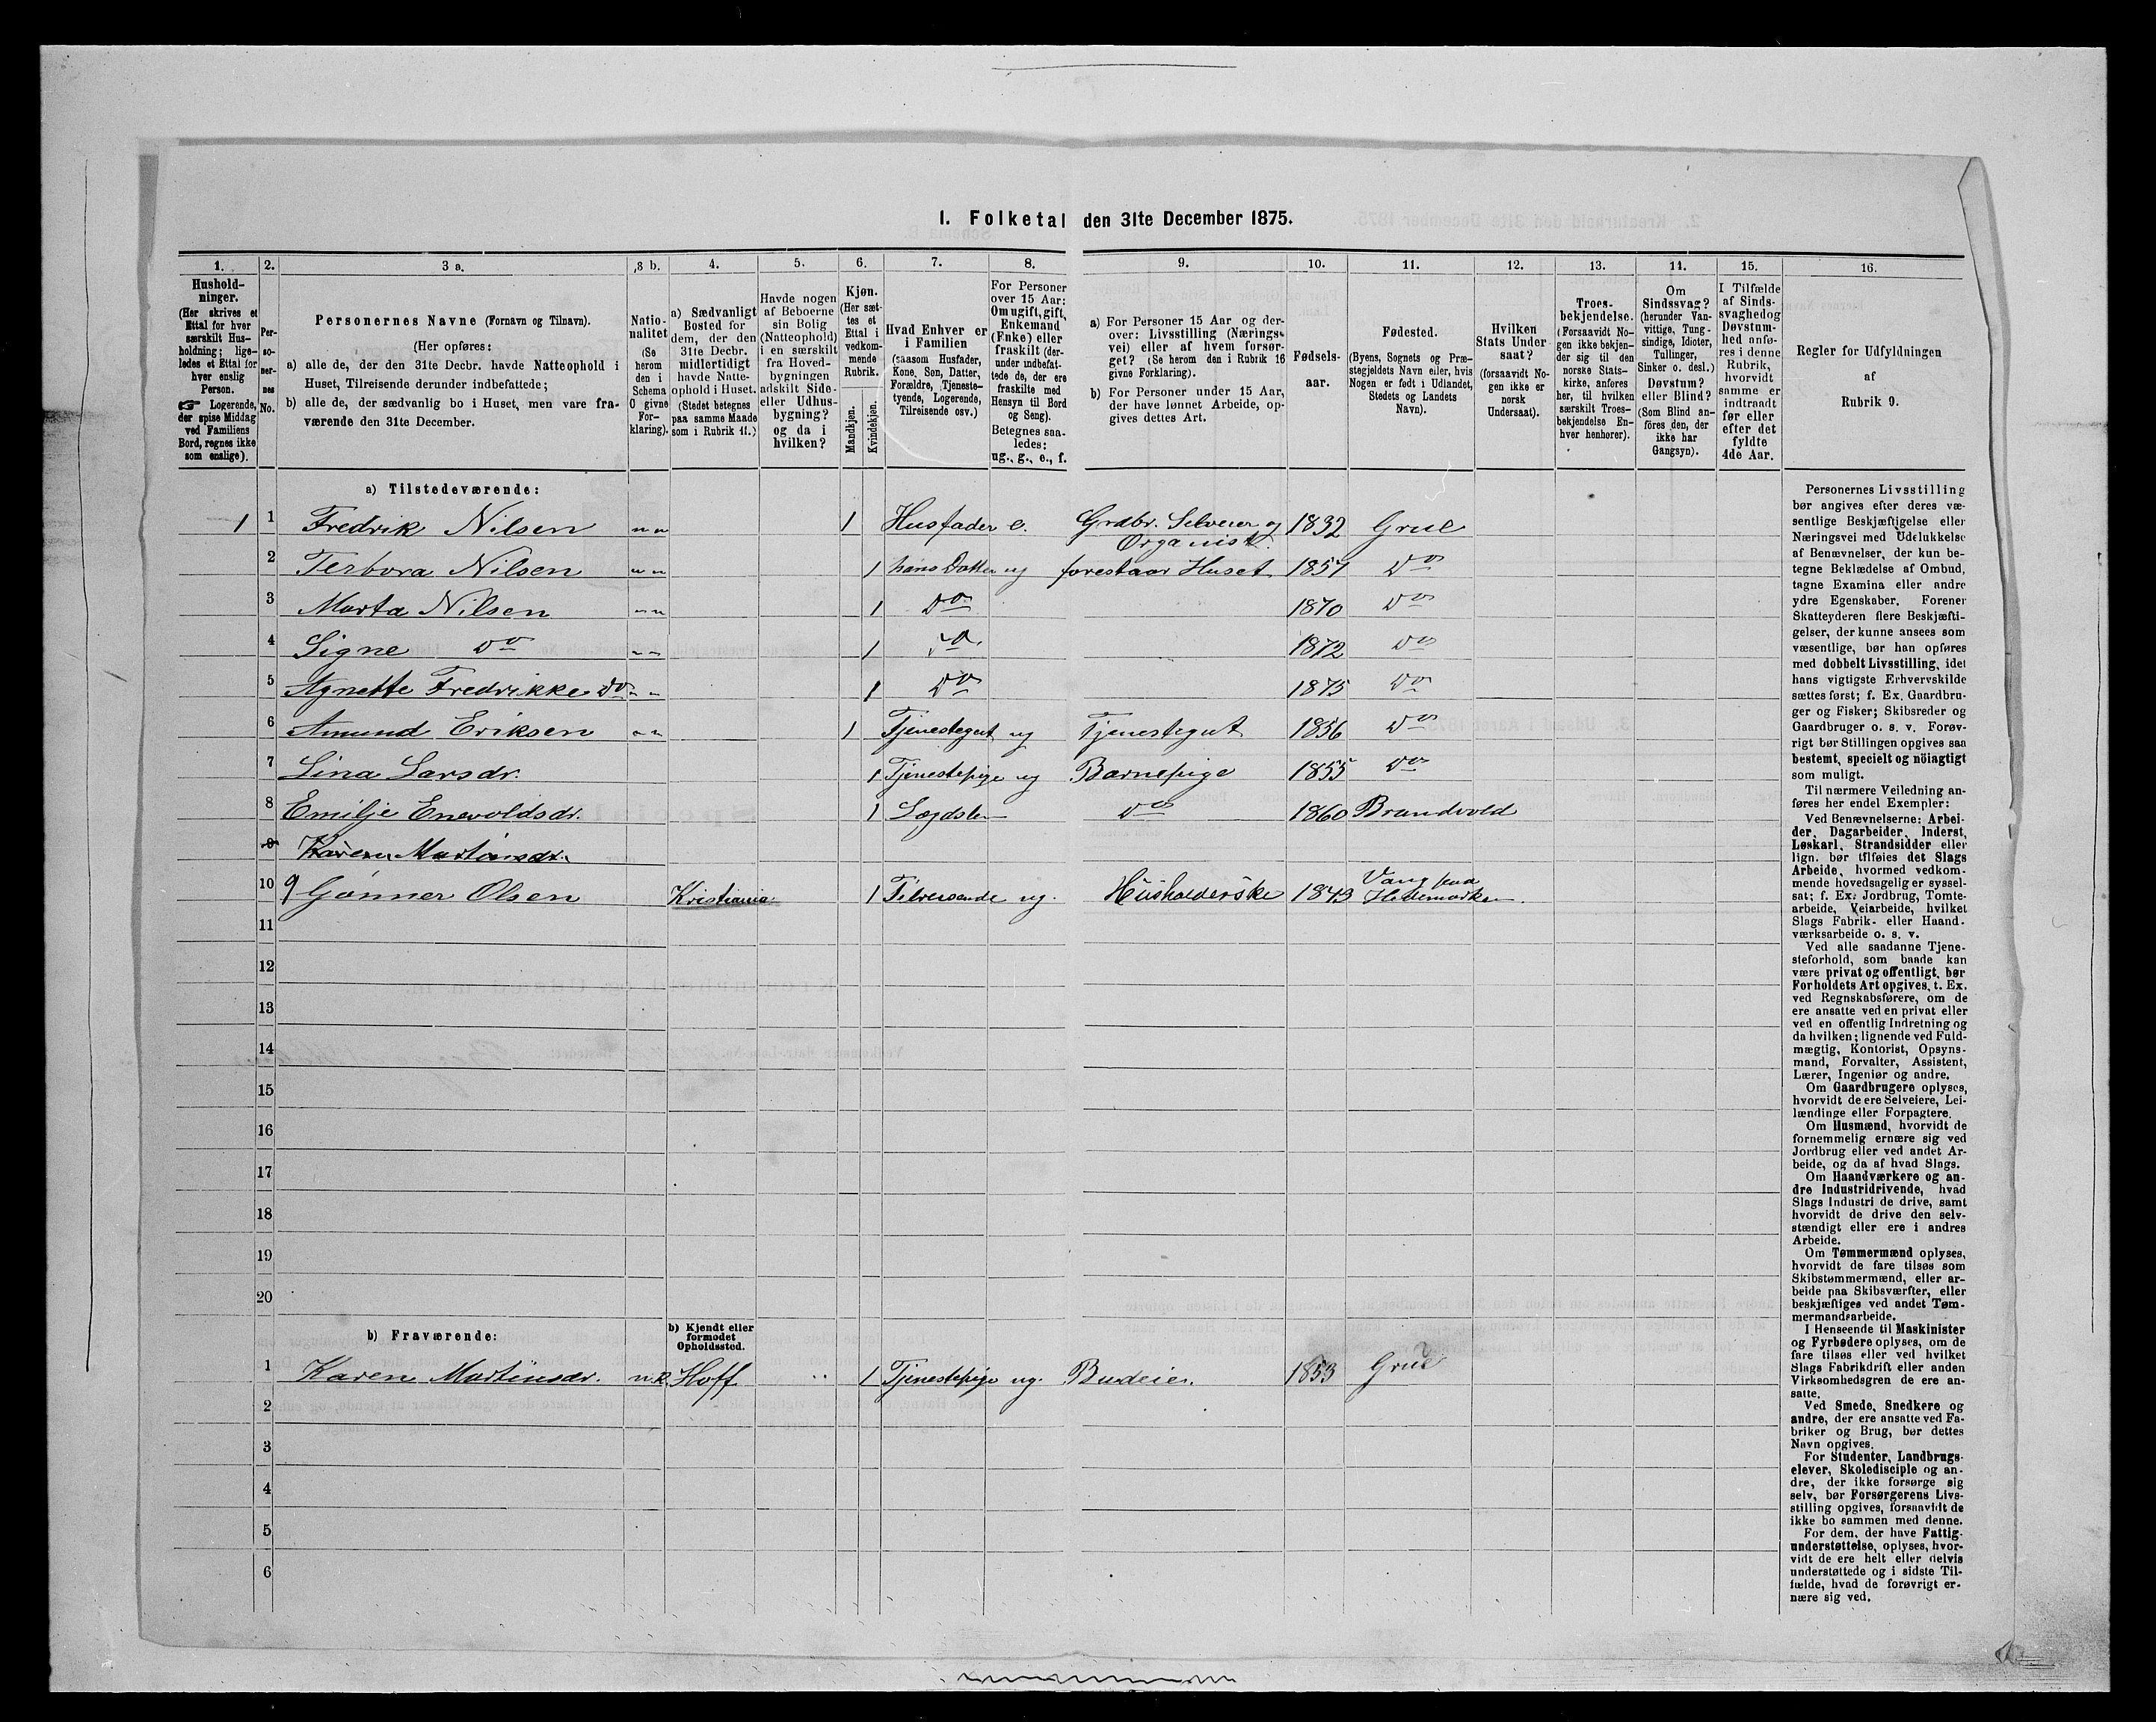 1. Folketal den 31te December 1875.
1.
2.
3 a.
3 b.
4.
5.
6.
7.
8.
9.
10.
11.
12.
13.
14.
15.
16.
Hushold-
ninger.
(Her skrives et
Ettal for hver
særskilt Hus-
holdning; lige-
ledes et Ettal for
hver enslig
Person.
☞ Logerende,
der spise Middag
ved Familiens
Bord, regnes ikke
som enslige).
Per-
so-
ner-
nes
No.
Personernes Navne (Fornavn og Tilnavn).
(Her opføres:
a) alle de, der den 31te Decbr. havde Natteophold i
Huset, Tilreisende derunder indbefattede;
b) alle de, der sædvanlig bo i Huset, men vare fra-
værende den 31te December.
Natio-
nalitet
(Se
herom
den i
Schema
O givne
For-
klaring).
a) Sædvanligt
Bosted for
dem, der den
31te Decbr.
midlertidigt
havde Natte-
ophold i Huset.
(Stedet betegnes
paa samme Maade
som i Rubrik 11.)
Havde nogen
af Beboerne
sin Bolig
(Natteophold)
i en særskilt
fra Hoved-
bygningen
adskilt Side-
eller Udhus-
bygning?
og da i
hvilken?
Kjøn.
(Her sæt-
tes et
Ettal i
vedkom-
mende
Rubrik.
Mandkjøn.
Kvindekjøn.
Hvad Enhver er
i Familien
(saasom Husfader,
Kone, Søn, Datter,
Forældre, Tjeneste-
tyende, Logerende,
Tilreisende osv.)
For Personer
over 15 Aar:
Om ugift, gift,
Enkemand
(Enke) eller
fraskilt (der-
under indbefat-
tede de, der ere
fraskilte med
Hensyn til Bord
og Seng).
Betegnes saa-
ledes:
ug., g., e., f.
a) For Personer 15 Aar og der-
over: Livsstilling (Nærings-
vei) eller af hvem forsør-
get? (Se herom den i Rubrik 16
givne Forklaring).
b) For Personer under 15 Aar,
der have lønnet Arbeide, op-
gives dettes Art.
Fødsels-
aar.
Fødested.
(Byens, Sognets og Præ-
stegjeldets Navn eller, hvis
Nogen er født i Udlandet,
Stedets og Landets
Navn).
Hvilken
Stats Under
saat?
(forsaavidt No-
gen ikke er
norsk
Undersaat).
Troes-
bekjendelse.
(Forsaavidt No-
gen ikke bekjen-
der sig til den
norske Stats-
kirke, anføres
her, til hvilken
særskilt Troes-
bekjendelse En-
hver henhører).
Om
Sindssvag?
(herunder Van-
vittige, Tung-
sindige, Idioter,
Tullinger,
Sinker o. desl.)
Døvstum?
eller Blind?
(Som Blind an-
føres den, der
ikke har
Gangsyn).
I Tilfælde
af Sinds-
svaghed og
Døvstum-
hed anfø-
res i denne
Rubrik,
hvorvidt
samme er
indtraadt
før eller
efter det
fyldte
4de Aar.
Regler for Udfyldningen
af
Rubrik 9.
a) Tilstedeværende:
1 1 Fredrik Nilsen 1 Husfader e. Grdbr. Selveier og Organist. 1832 Grue
2 Terbora Nilsen 1 hans Datter ug forestaar Huset 1857 Do
3 Marta Nilsen 1 Do 1870 Do
4 Signe Do 1 Do 1872 Do
5 Agnette Fredrikke Do 1 Do 1875 Do
6 Amund Eriksen 1 Tjenestegut ug Tjenestegut 1856 Do
7 Lina Larsdr. 1 Tjenestepige ug Barnepige 1855 Do
8 Emilje Enevoldsdr. 1 Lægdslem Do 1860 Brandvold
9 Karen Martinsdr.
10 9 Gunner Olsen Kristiania 1 Tilreisende ug. Husholderske 1843 Vang paa Hedemarken.
11
12
13
14
15
16
17
18
19
20
b) Fraværende:
b) Kjendt eller
formodet
Opholdssted.
1 Karen Martinsdr. n.k Hoff 1 Tjenestepige ug. Budeie. 1853 Grue
2
3
4
5
6
Personernes Livsstilling
bør angives efter deres væ-
sentlige Beskjæftigelse eller
Næringsvei med Udelukkelse
af Benævnelser, der kun be-
tegne Beklædelse af Ombud,
tagne Examina eller andre
ydre Egenskaber. Forener
Skatteyderen flere Beskjæfti-
gelser, der kunne ansees som
væsentlige, bør han opføres
med dobbelt Livsstilling, idet
hans vigtigste Erhvervskilde
sættes først; f. Ex. Gaardbru-
ger og Fisker; Skibsreder og
Gaardbruger o. s. v. Forøv-
rigt bør Stillingen opgives saa
bestemt, specielt og nöiagtigt
som muligt.
Til nærmere Veiledning an-
føres her endel Exempler:
Ved Benævnelserne: Arbei-
der, Dagarbeider, Inderst,
Løskarl, Strandsidder eller
lign. bør tilføies det Slags
Arbeide, hvormed vedkom-
mende hovedsagelig er syssel-
sat; f. Ex. Jordbrug, Tomte-
arbeide, Veiarbeide, hvilket
Slags Fabrik- eller Haand-
værksarbeide o. s. v.
Ved alle saadanne Tjene-
steforhold, som baade kan
være privat og offentligt, bør
Forholdets Art opgives, t. Ex.
ved Regnskabsførere, om de
ere ansatte ved en privat eller
ved en offentlig Indretning og
da hvilken; lignende ved Fuld-
mægtig, Kontorist, Opsyns-
mand, Forvalter, Assistent,
Lærer, Ingeniør og andre.
Om Gaardbrugere oplyses,
hvorvidt de ere Selveiere, Lei-
lændinge eller Forpagtere.
Om Husmænd, hvorvidt de
fornemmelig ernære sig ved
Jordbrug eller ved andet Ar-
beide, og da af hvad Slags.
Om Haandværkere og an-
dre Industridrivende, hvad
Slags Industri de drive, samt
hvorvidt de drive den selv-
stændigt eller ere i andres
Arbeide.
Om Tømmermænd oplyses,
hvorvidt de fare tilsøs som
Skibstømmermænd, eller ar-
beide paa Skibsværfter, eller
beskjæftiges ved andet Tøm-
mermandsarbeide.
I Henseende til Maskinister
og Fyrbødere oplyses, om de
fare tilsøs eller ved hvilket
Slags Fabrikdrift eller anden
Virksomhedsgren de ere an-
satte.
Ved Smede, Snedkere og
andre, der ere ansatte ved Fa-
briker og Brug, bør dettes
Navn opgives.
For Studenter, Landbrugs-
elever, Skoledisciple og an-
dre, der ikke forsørge sig
selv, bør Forsørgerens Livs-
stilling opgives, forsaavidt de
ikke bo sammen med denne.
For dem, der have Fattig-
understøttelse, oplyses, hvor-
vidt de ere helt eller delvis
understøttede og i sidste Til-
fælde, hvad de forøvrigt er-
nære sig ved.